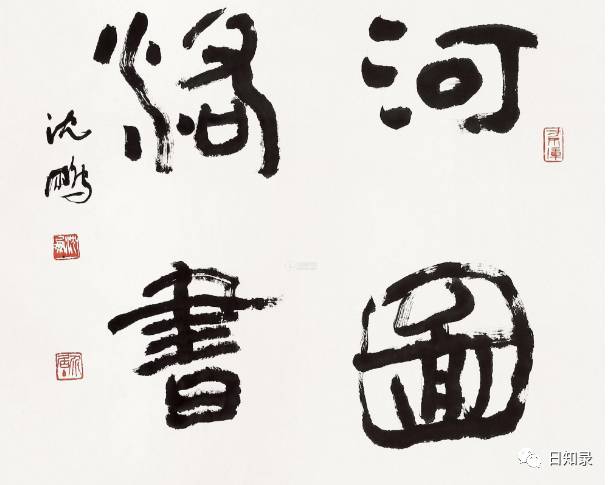 河圖
洛書
沈鵬
日知录